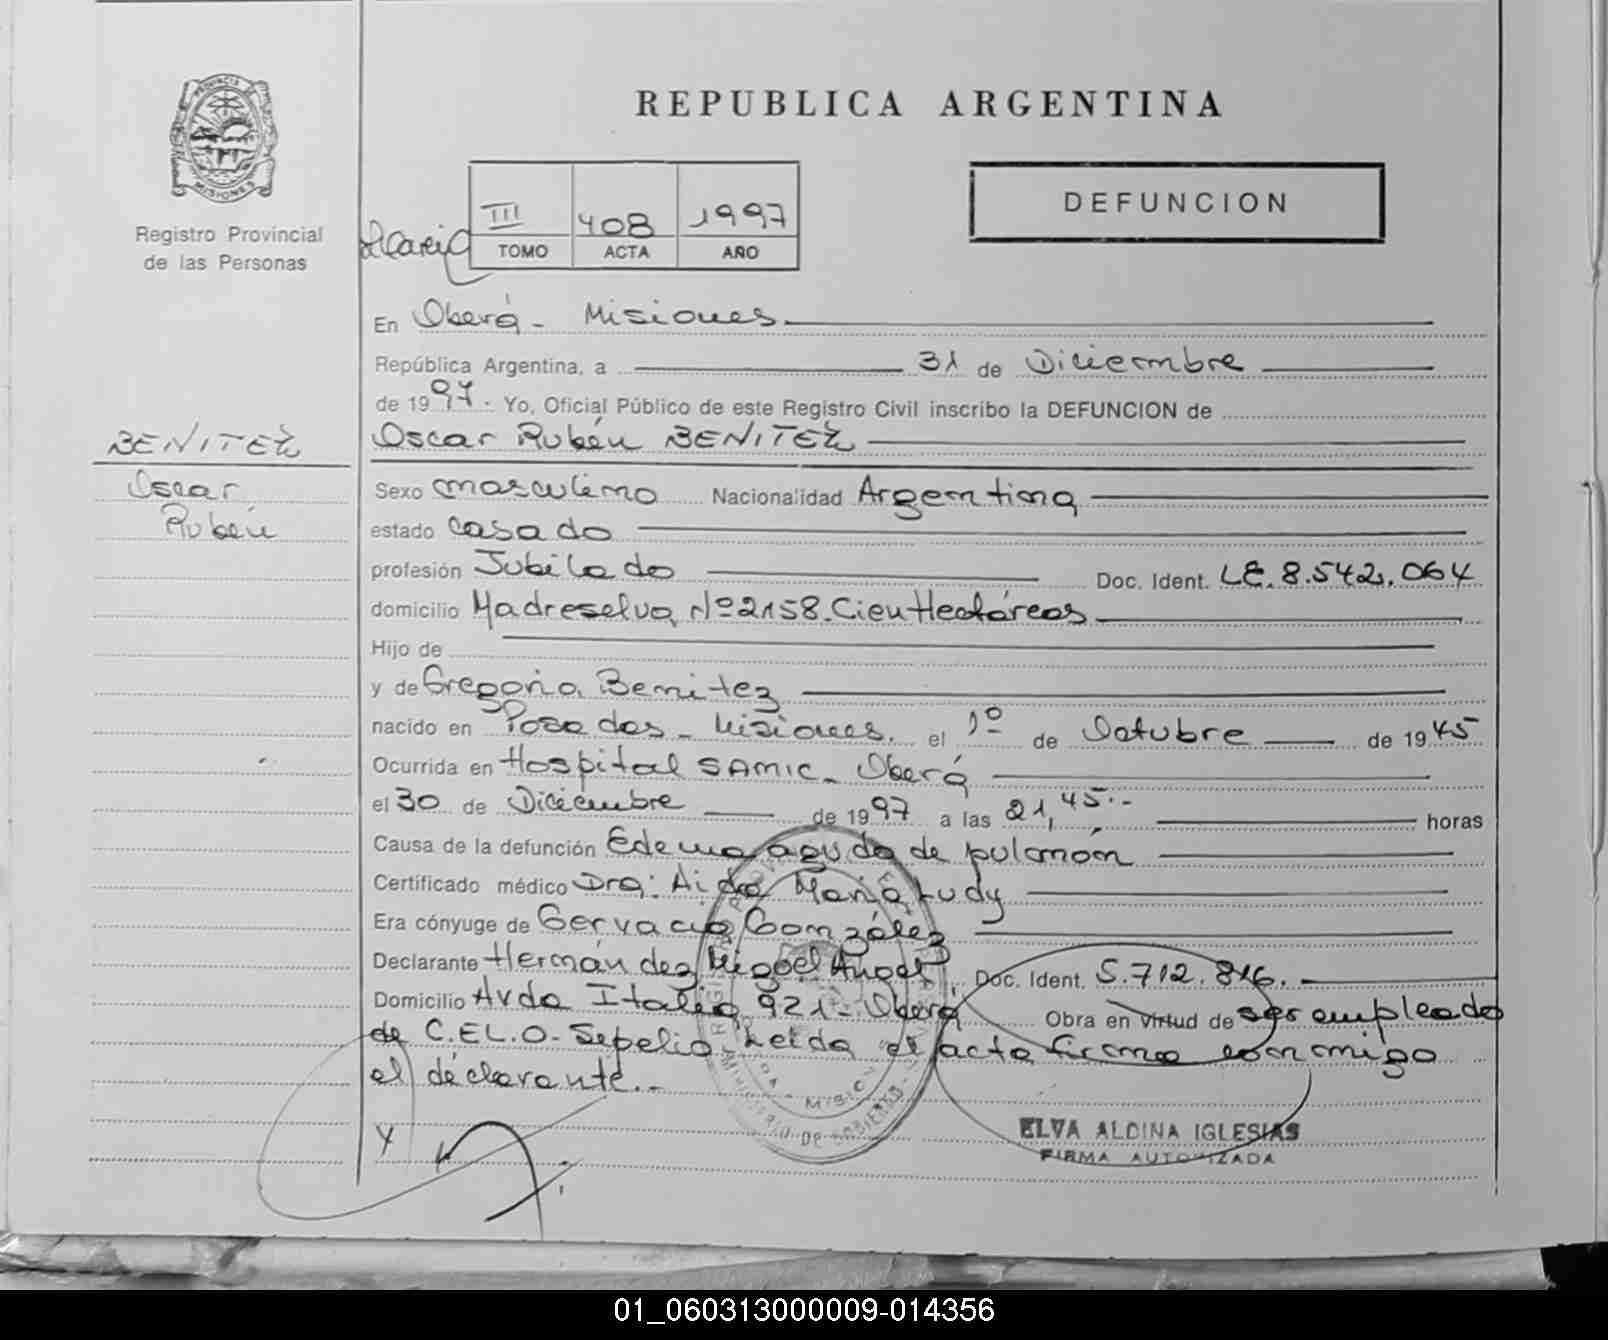 REPUBLICA ARGENTINA
PROVINCIA DE
MISIONES
Registro Provincial
de las Personas
DEFUNCION
III 408 1997
TOMO ACTA AÑO
En Oberá - Misiones
República Argentina, a 31 de Diciembre
de 1997. Yo, Oficial Público de este Registro Civil inscribo la DEFUNCION de
Oscar Rubén BENITEZ
BENITEZ
Oscar
Rubén
Sexo masculino Nacionalidad Argentina
estado casado
profesión Jubilado Doc. Ident. LE. 8.542.064
domicilio Madreselva Nº 2158. Cien Hectáreas
Hijo de
y de Gregoria Benitez
nacido en Posadas - Misiones. el 1º de Octubre de 1945
Ocurrida en Hospital SAMIC - Oberá
el 30 de Diciembre de 1997 a las 21,45.- horas
Causa de la defunción Edema agudo de pulmón
Certificado médico Dra: Aida María Ludy
Era cónyuge de Gervacia González
Declarante Hernández Miguel Angel, Doc. Ident. 5.712.816.
Domicilio Avda Italia 921 - Oberá Obra en virtud de ser empleado
de C.E.L.O - Sepelio. Leida el acta firma conmigo
el declarante.-
MINISTERIO DE GOBIERNO
ELVA ALDINA IGLESIAS
FIRMA AUTORIZADA
01_060313000009-014356